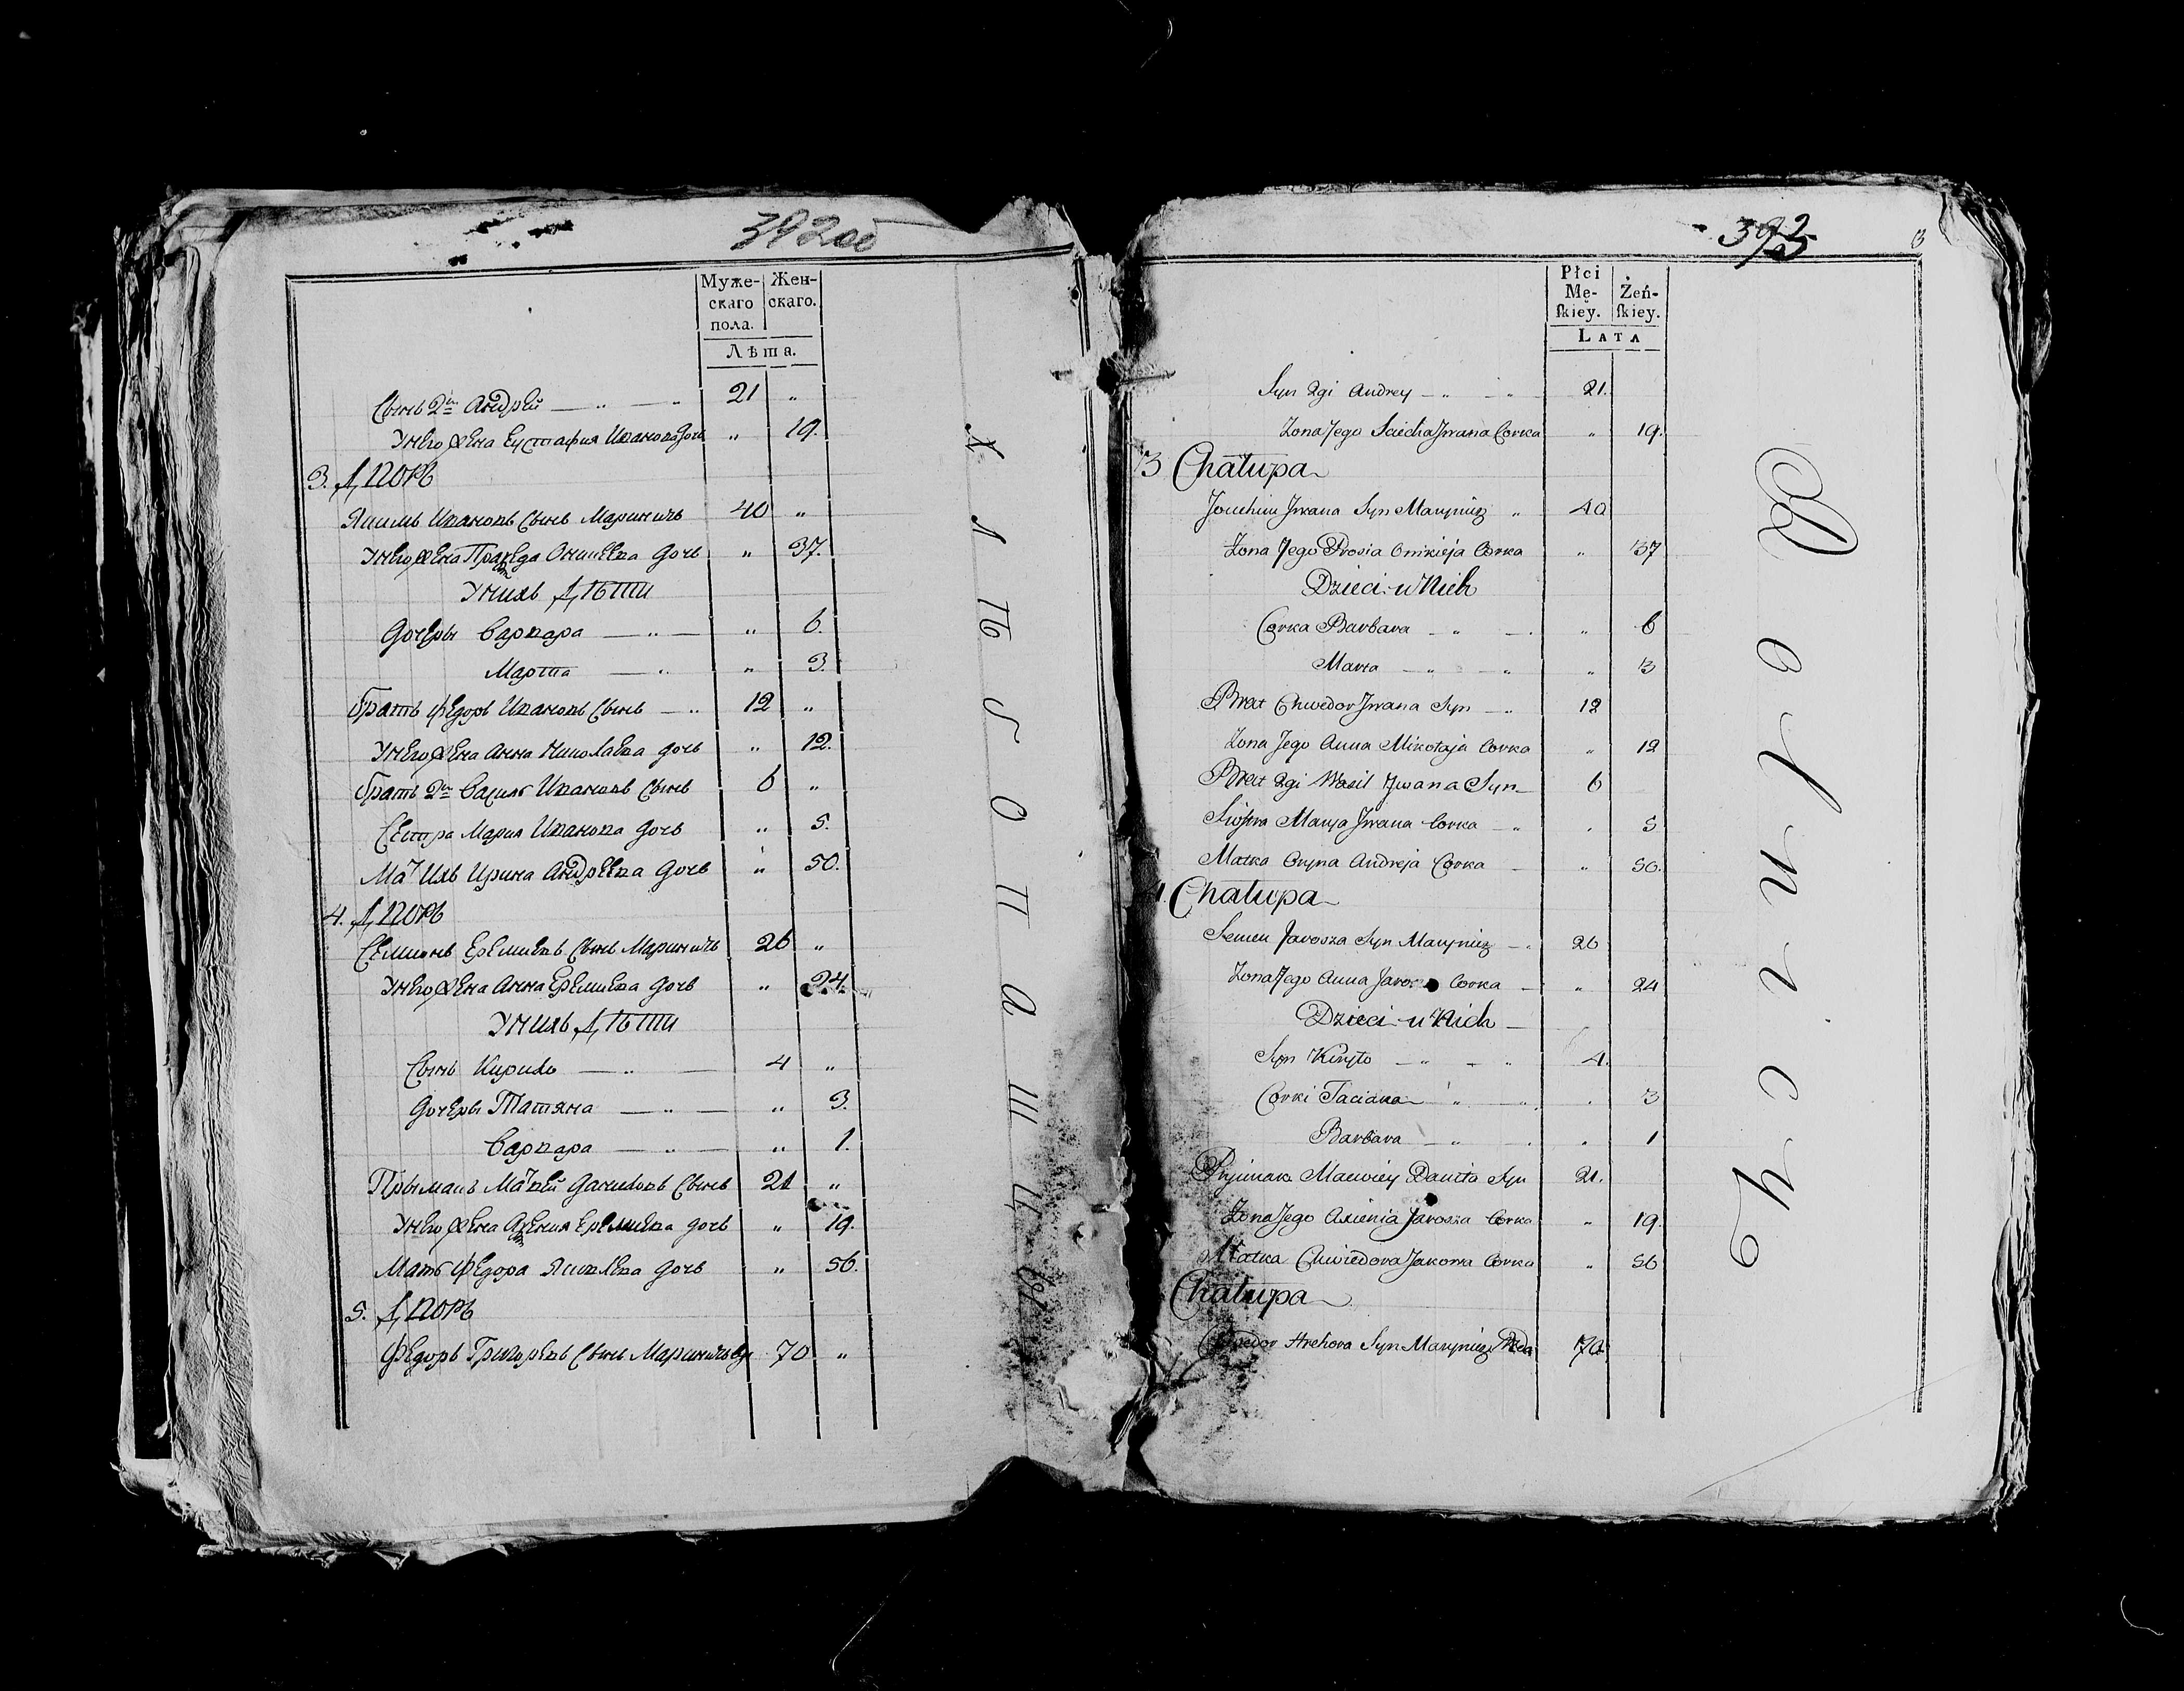 392об
Муже-
скаго
пола.
Жен-
скаго.
Лѣта.
Сынъ 2й Андрей — " — " 21 "
У него жена Еустафия Иванова дочь " 19.
3. Дворъ
Якимъ Ивановъ Сынъ Мариничъ 40 "
У него жена Праxеда Оникеева дочь " 37.
У нихъ Дѣти
Дочеры Варвара — " — " 6.
Марта — " " 3.
Братъ Федоръ Ивановъ Сынъ — " 12 "
У него жена Анна Николаева дочь " 12.
Братъ 2й Василь Ивановъ Сынъ 6 "
Сестра Мария Иванова дочь " 5.
Мат ихъ Ирина Андреева дочь " 50.
4. Дворъ
Семионъ Еремиевъ Сынъ Мариничъ 26 "
У него жена Анна Еремиева дочь " 24.
У нихъ Дѣти
Сынъ Кирило — " — 4 "
Дочеры Татяна — " — " 3.
Варвара — " — " 1.
Прымакъ Матвей Даниловъ Сынъ 21 "
У него жена Аxения Еремиева дочь " 19.
Мать Федора Яковлева дочь " 56.
5. Дворъ
Федоръ Григоревъ Сынъ Мариничъ 70 "
Хлѣбопашцы
392
Płci
Mę-
ſkiey.
Żeń-
ſkiey.
LATA
Syn 2gi Andrey — " — " 21.
Zona Jego Sciecha Jwana Corka " 19.
3 Chałupa
Jouchim Jwana Syn Marynicz " 40
Zona Jego Prosia Onikieja Corka " 37
Dzieci u Nich
Corka Barbara — " — " 6
Marta — " — " " 3
Brat Chwedor Jwana Syn — " 12
Zona Jego Anna Mikołaja Corka " 12
Brat 2gi Wasil Jwana Syn 6
Siostra Marya Jwana Corka — " " 5
Matka Oryna Andreja Corka — " 50.
4. Chałupa
Semen Jarosza Syn Marynicz — " 26
Zona Jego Anna Corka — " 24
Dzieci u Nich
Syn Kiryło — " — " 4.
Corki Taciana — " — " " 3
Barbara — " " 1
Pryimak Maciwiey Daniła Syn 21.
Zona Jego Axienia Jarosza Corka " 19.
Matka Chwiedora Jakowa Corka " 56
Chałupa
Chwedor Hrehora Syn Marynicz 70
Rolnicy